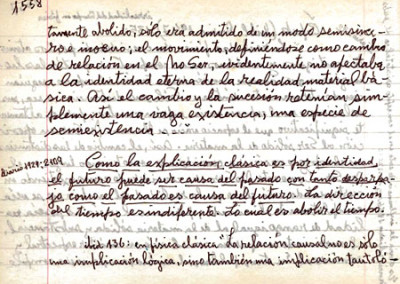 1558
tamente abolido, sólo era admitido de un modo semisince-
ro e inocuo; el movimiento, definiéndose como cambio
de relación en el No Ser, evidentemente no afectaba
a la identidad eterna de la realidad material bá-
sica. Así el cambio y la sucesión retenían sim-
plemente una vaga existencia, una especie de
semiexistencia
Diario 1929: 2109
Como la explicación clásica es por identidad,
el futuro puede ser causa del pasado con tanto desparpa-
jo como el pasado es causa del futuro. La dirección
del tiempo es indiferente. Lo cual es abolir el tiempo.
136: en física clásica "La relación causal no es sólo
una implicación lógica, sino también una implicación tautoló-